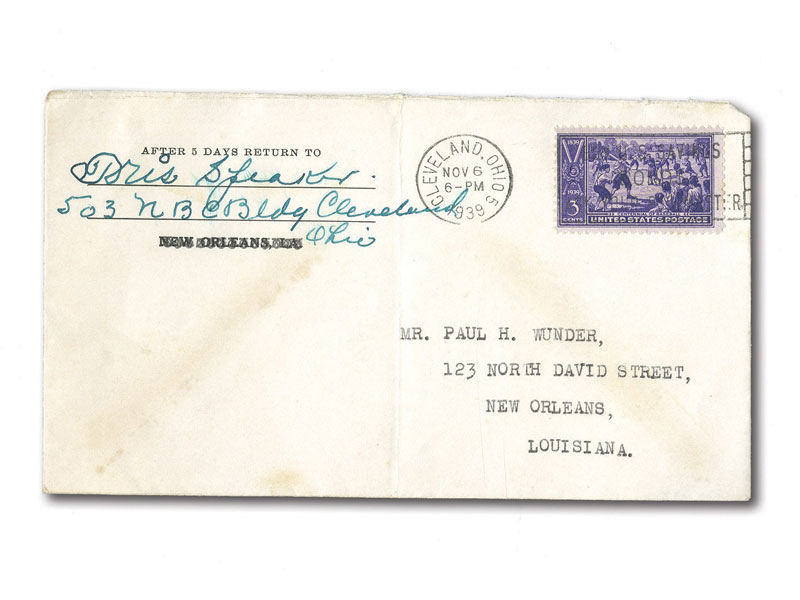 AFTER 5 DAYS RETURN TO
Tris Speaker.
503 NBC Bldg Cleveland
Ohio
NEW ORLEANS, LA
CLEVELAND, OHIO 5
NOV 6
6-PM
1939
1839
1939
3
CENTS
CENTENNIAL OF BASEBALL
UNITED STATES POSTAGE
SAVINGS
MR. PAUL H. WUNDER,
123 NORTH DAVID STREET,
NEW ORLEANS,
LOUISIANA.